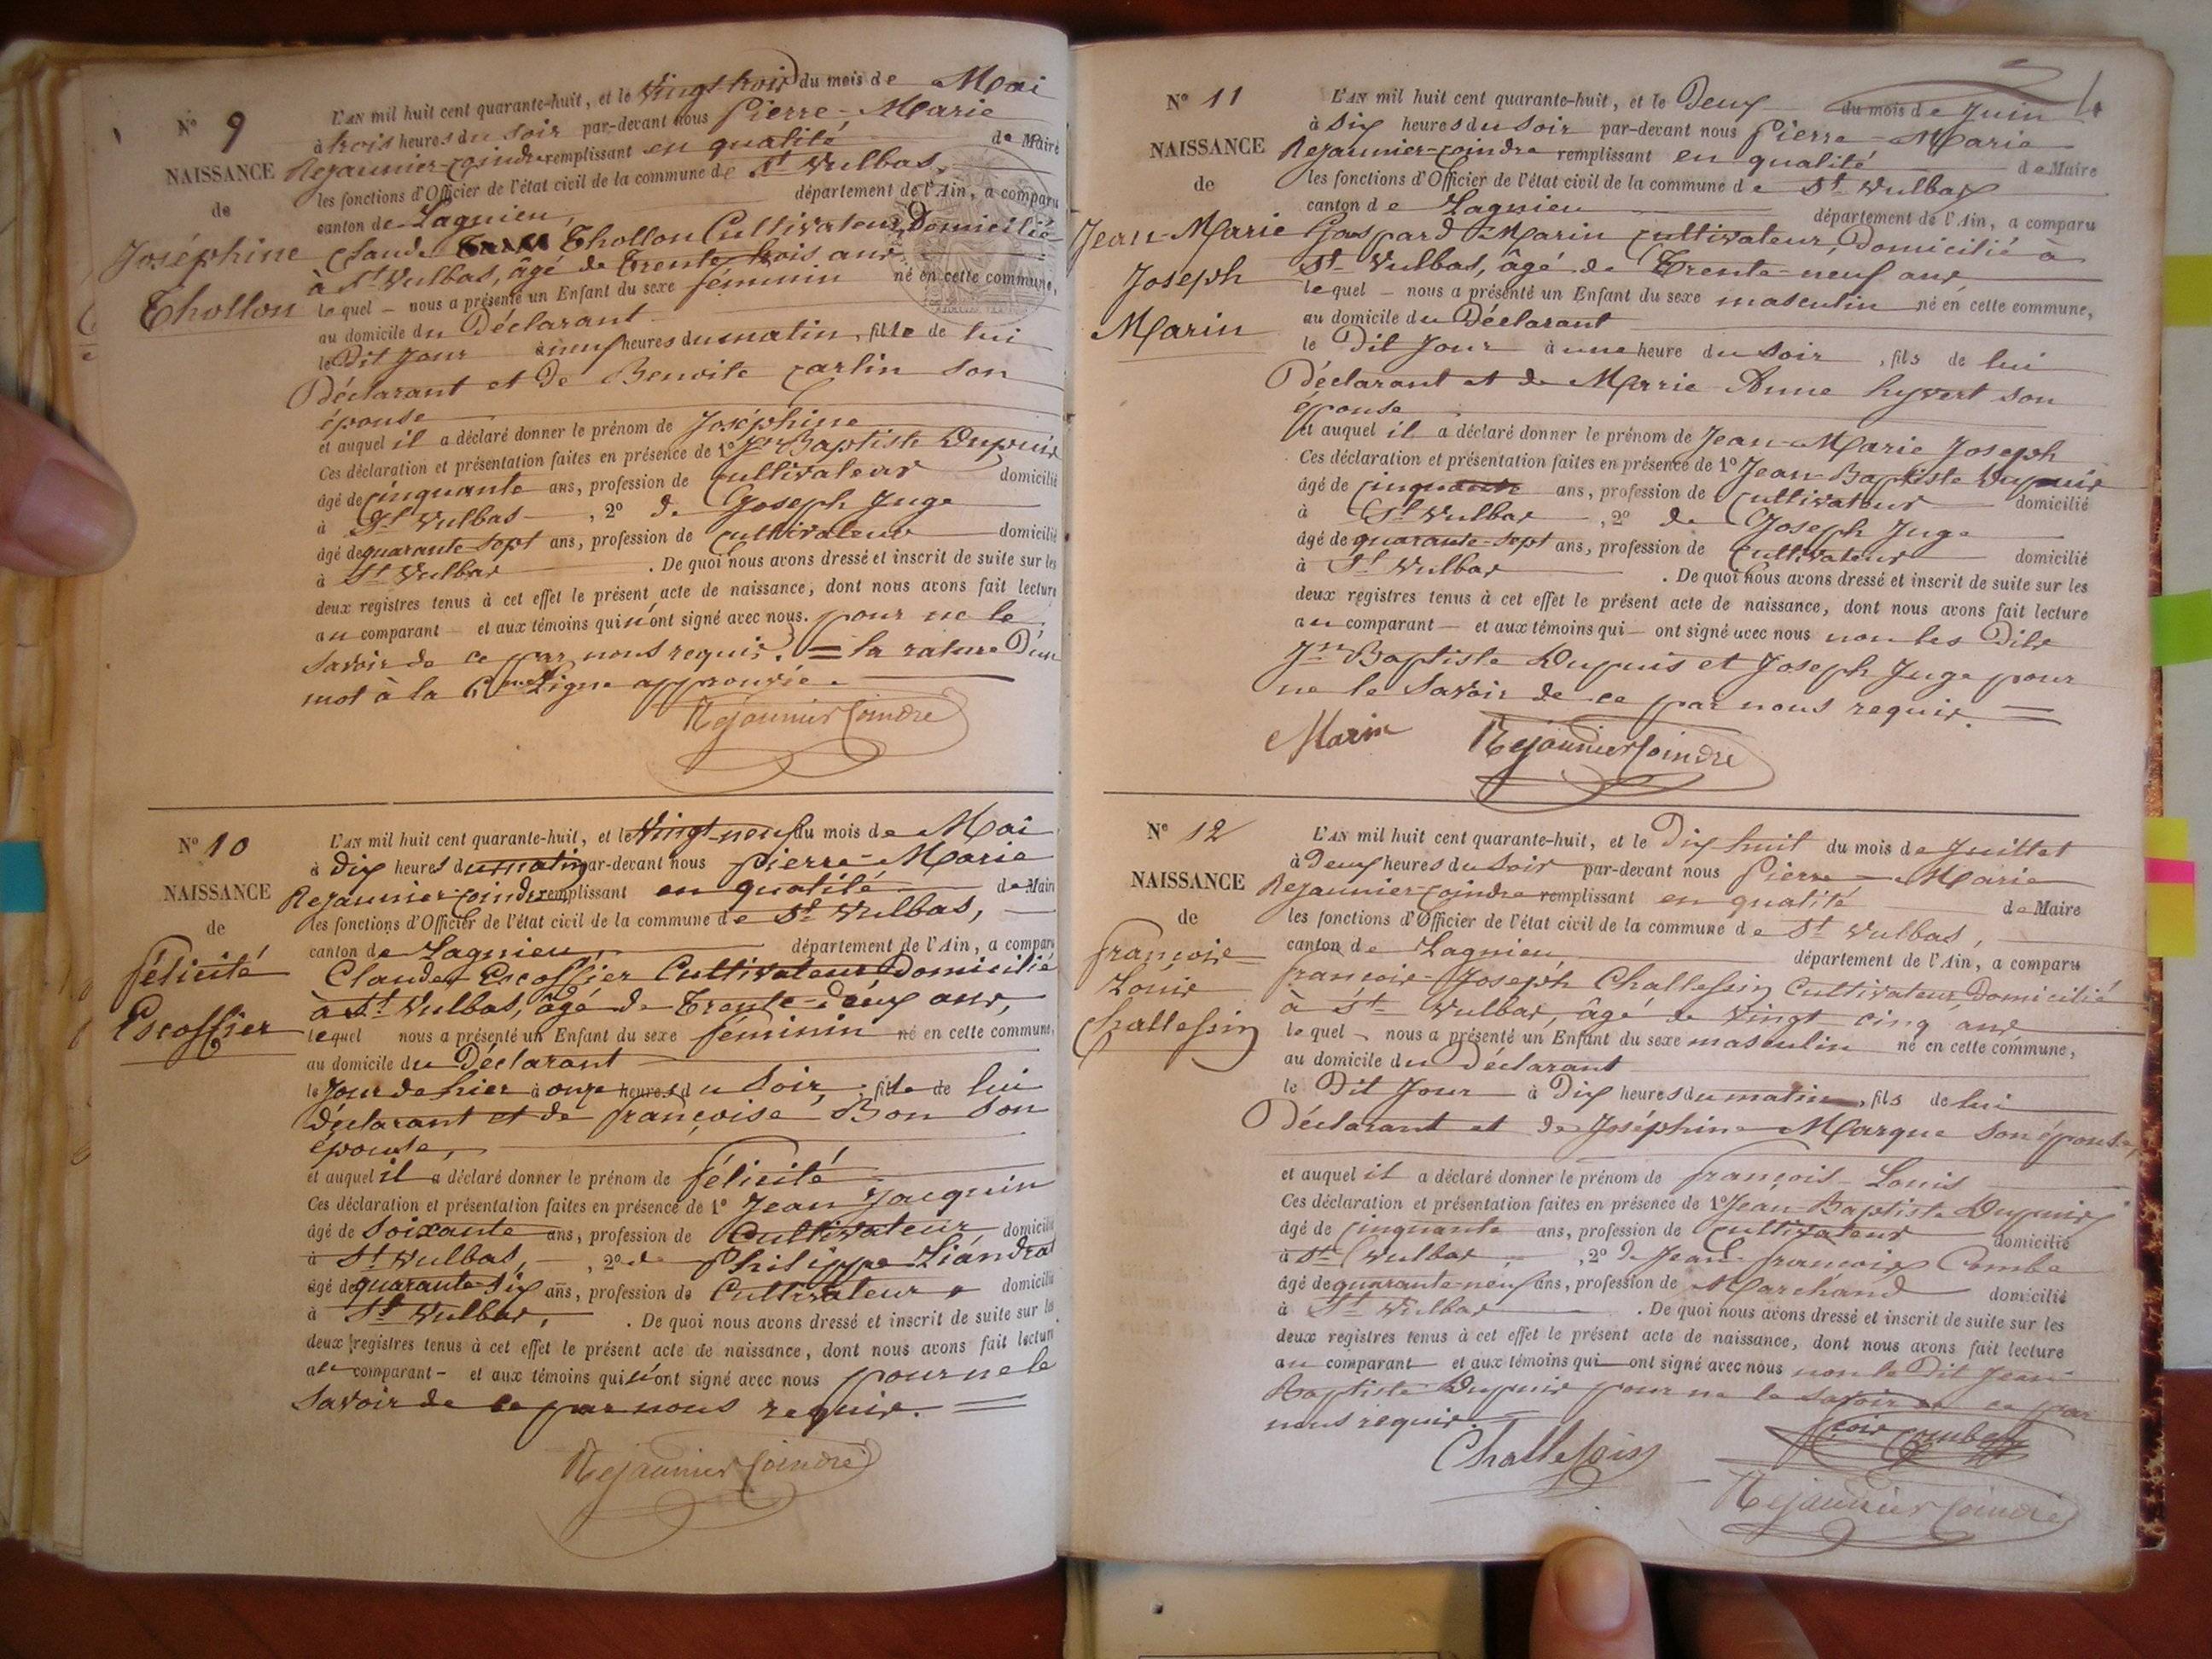 N° 9
NAISSANCE
de
Joséphine
Thollon
L'AN mil huit cent quarante-huit, et le Vingt trois du mois de Mai
à trois heures du soir par-devant nous Pierre-Marie
Rejaunier-Coindre remplissant en qualité de Maire
les fonctions d'Officier de l'état civil de la commune de St Vulbas,
canton de Lagnieu, département de l'Ain, a comparu
Claude Thollon Cultivateur, Domicilié
à St Vulbas, âgé de trente trois ans
lequel nous a présenté un Enfant du sexe féminin né en cette commune,
au domicile du Déclarant
le Dit Jour à neuf heures du matin, fille de lui
Déclarant et de Benoite Carlin son
épouse
et auquel il a déclaré donner le prénom de Joséphine
Ces déclaration et présentation faites en présence de 1° Jn Baptiste Dupuis
âgé de cinquante ans, profession de Cultivateur domicilié
à St Vulbas, 2° de Joseph Juge
âgé de quarante-sept ans, profession de Cultivateur domicilié
à St Vulbas. De quoi nous avons dressé et inscrit de suite sur les
deux registres tenus à cet effet le présent acte de naissance, dont nous avons fait lecture
au comparant et aux témoins qui n'ont signé avec nous. pour ne le
savoir de ce par nous requis. = la rature D'un
mot à la 6me Ligne approuvée.
Rejaunier Coindre
N° 10
NAISSANCE
de
félicité
Escoffier
L'AN mil huit cent quarante-huit, et le Vingt-neuf du mois de Mai
à Dix heures du matin par-devant nous Pierre-Marie
Rejaunier-Coindre remplissant en qualité de Maire
les fonctions d'Officier de l'état civil de la commune de St Vulbas,
canton de Lagnieu, département de l'Ain, a comparu
Claude Escoffier Cultivateur Domicilié
à St Vulbas, âgé de Trente-deux ans,
lequel nous a présenté un Enfant du sexe féminin né en cette commune,
au domicile du Déclarant
le Jour de hier à onze heures du soir, fille de lui
déclarant et de françoise Bon son
épouse,
et auquel il a déclaré donner le prénom de félicité
Ces déclaration et présentation faites en présence de 1° Jean Jacquin
âgé de soixante ans, profession de Cultivateur domicilié
à St Vulbas, 2° de Philippe Liandrat
âgé de quarante-six ans, profession de Cultivateur domicilié
à St Vulbas, . De quoi nous avons dressé et inscrit de suite sur les
deux registres tenus à cet effet le présent acte de naissance, dont nous avons fait lecture
au comparant - et aux témoins qui n'ont signé avec nous pour ne le
savoir de ce par nous requis. =
Rejaunier Coindre
N° 11
NAISSANCE
de
Jean-Marie
Joseph
Marin
L'AN mil huit cent quarante-huit, et le Deux du mois de Juin
à six heures du soir par-devant nous Pierre-Marie
Rejaunier-Coindre remplissant en qualité de Maire
les fonctions d'Officier de l'état civil de la commune de St Vulbas
canton de Lagnieu département de l'Ain, a comparu
Gaspard Marin cultivateur, Domicilié à
St Vulbas, âgé de Trente-neuf ans
lequel nous a présenté un Enfant du sexe masculin né en cette commune,
au domicile du Déclarant
le Dit Jour à une heure du soir, fils de lui
Déclarant et de Marie Anne hyvert son
épouse
et auquel il a déclaré donner le prénom de Jean-Marie Joseph
Ces déclaration et présentation faites en présence de 1° Jean-Baptiste Dupuis
âgé de cinquante ans, profession de Cultivateur domicilié
à St Vulbas, 2° de Joseph Juge
âgé de quarante-sept ans, profession de Cultivateur domicilié
à St Vulbas. De quoi nous avons dressé et inscrit de suite sur les
deux registres tenus à cet effet le présent acte de naissance, dont nous avons fait lecture
au comparant - et aux témoins qui - ont signé avec nous non les Dits
Jn Baptiste Dupuis et Joseph Juge pour
ne le savoir de ce par nous requis. =
Marin Rejaunier Coindre
N° 12
NAISSANCE
de
françois
Louis
Challessin
L'AN mil huit cent quarante-huit, et le Dix huit du mois de Juillet
à Deux heures du soir par-devant nous Pierre-Marie
Rejaunier-Coindre remplissant en qualité de Maire
les fonctions d'Officier de l'état civil de la commune de St Vulbas,
canton de Lagnieu département de l'Ain, a comparu
françois-Joseph Challessin Cultivateur Domicilié
à St Vulbas, âgé de Vingt cinq ans
lequel nous a présenté un Enfant du sexe masculin né en cette commune,
au domicile du Déclarant
le Dit Jour à Dix heures du matin, fils de lui
Déclarant et de Joséphine Marque son épouse,
et auquel il a déclaré donner le prénom de françois-Louis
Ces déclaration et présentation faites en présence de 1° Jean-Baptiste Dupuis
âgé de cinquante ans, profession de cultivateur domicilié
à St Vulbas, 2° de Jean françois Combe
âgé de quarante-neuf ans, profession de Marchand domicilié
à St Vulbas. De quoi nous avons dressé et inscrit de suite sur les
deux registres tenus à cet effet le présent acte de naissance, dont nous avons fait lecture
au comparant et aux témoins qui - ont signé avec nous non le Dit Jean-
Baptiste Dupuis pour ne le savoir de ce par
nous requis =
Rejaunier Coindre